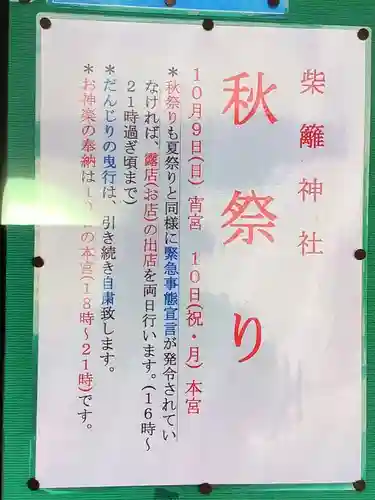 柴籬神社
秋祭り
10月9日(日) 宵宮 10日(祝・月) 本宮
*秋祭りも夏祭りと同様に緊急事態宣言が発令されてい
なければ、露店(お店)の出店を両日行います。(16時~
21時過ぎ頃まで)
*だんじりの曳行は、引き続き自粛致します。
*お神楽の奉納は10日の本宮(18時~21時)です。